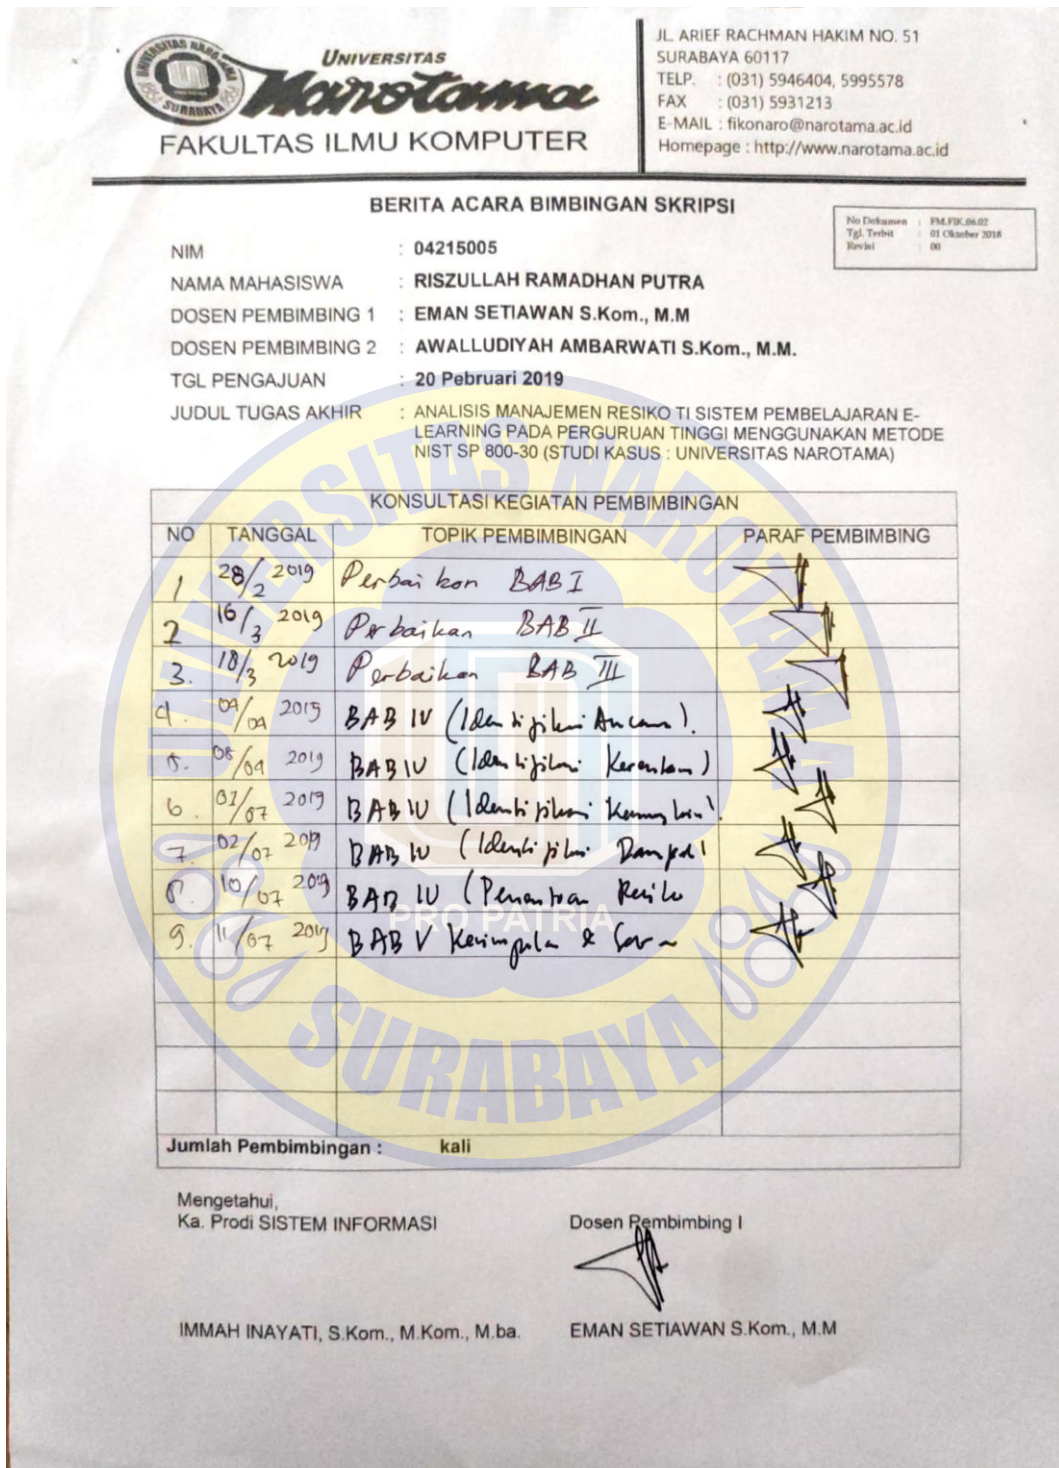 UNIVERSITAS NAROTAMA
SURABAYA
UNIVERSITAS
Narotama
FAKULTAS ILMU KOMPUTER
JL. ARIEF RACHMAN HAKIM NO. 51
SURABAYA 60117
TELP. : (031) 5946404, 5995578
FAX : (031) 5931213
E-MAIL : fikonaro@narotama.ac.id
Homepage : http://www.narotama.ac.id
BERITA ACARA BIMBINGAN SKRIPSI
No Dokumen : FM.FIK.06.02
Tgl. Terbit : 01 Oktober 2018
Revisi : 00
NIM : 04215005
NAMA MAHASISWA : RISZULLAH RAMADHAN PUTRA
DOSEN PEMBIMBING 1 : EMAN SETIAWAN S.Kom., M.M
DOSEN PEMBIMBING 2 : AWALLUDIYAH AMBARWATI S.Kom., M.M.
TGL PENGAJUAN : 20 Pebruari 2019
JUDUL TUGAS AKHIR : ANALISIS MANAJEMEN RESIKO TI SISTEM PEMBELAJARAN E-
LEARNING PADA PERGURUAN TINGGI MENGGUNAKAN METODE
NIST SP 800-30 (STUDI KASUS : UNIVERSITAS NAROTAMA)
KONSULTASI KEGIATAN PEMBIMBINGAN
NO TANGGAL TOPIK PEMBIMBINGAN PARAF PEMBIMBING
1 28/2 2019 Perbaikan BAB I
2 16/3 2019 Perbaikan BAB II
3. 18/3 2019 Perbaikan BAB III
4. 04/04 2019 BAB IV (Identifikasi Ancaman).
5. 08/04 2019 BAB IV (Identifikasi Kerentanan)
6. 01/07 2019 BAB IV (Identifikasi
7. 02/07 2019 BAB IV (Identifikasi Dampak)
8. 10/07 2019 BAB IV (Penentuan Resiko
9. 11/07 2019 BAB V Kesimpulan & Saran
Jumlah Pembimbingan : kali
UNIVERSITAS NAROTAMA
PRO PATRIA
SURABAYA
Mengetahui,
Ka. Prodi SISTEM INFORMASI
Dosen Pembimbing I
IMMAH INAYATI, S.Kom., M.Kom., M.ba.
EMAN SETIAWAN S.Kom., M.M